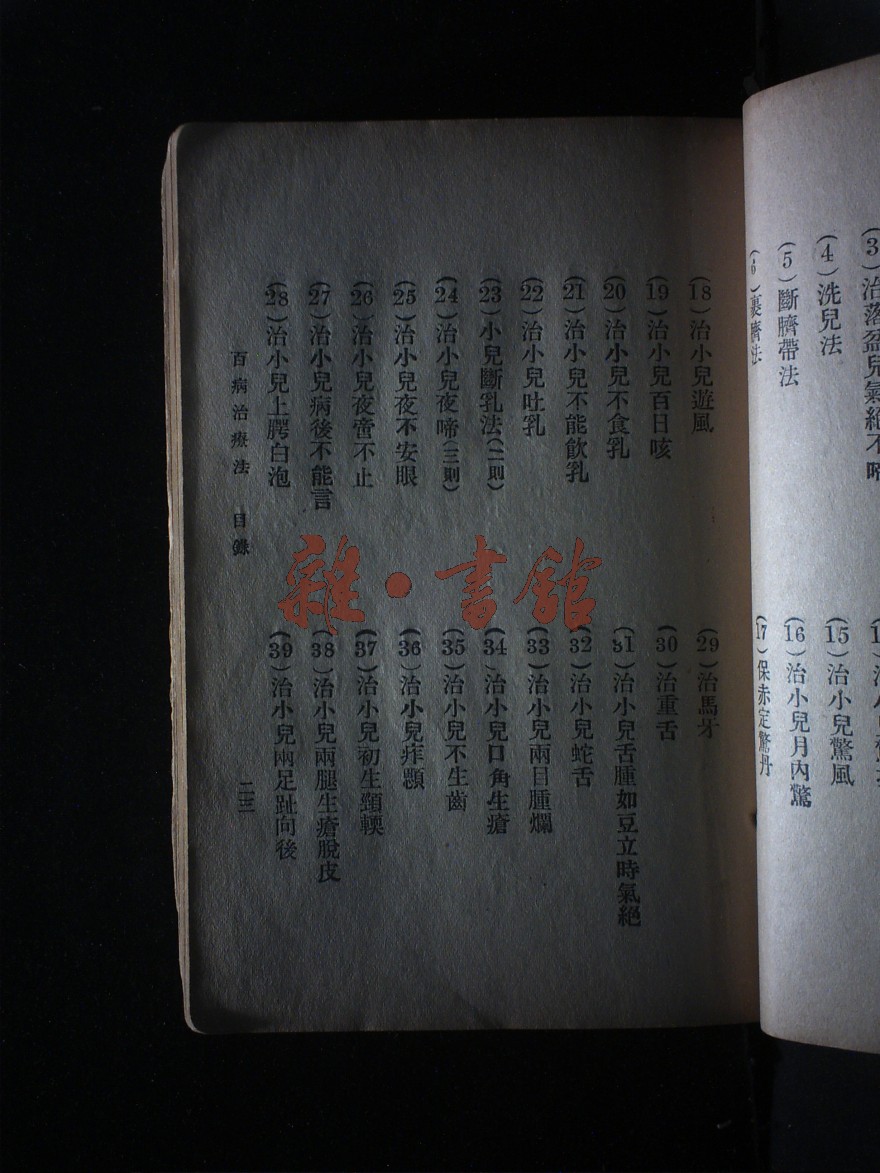 (3)治落盆兒氣絕不啼
(4)洗兒法
(5)斷臍帶法
(6)裹臍法
(15)治小兒驚風
(16)治小兒月內驚
(17)保赤定驚丹
(18)治小兒遊風
(19)治小兒百日咳
(20)治小兒不食乳
(21)治小兒不能飲乳
(22)治小兒吐乳
(23)小兒斷乳法(二則)
(24)治小兒夜啼(三則)
(25)治小兒夜不安眠
(26)治小兒夜啼不止
(27)治小兒病後不能言
(28)治小兒上腭白泡
(29)治馬牙
(30)治重舌
(31)治小兒舌腫如豆立時氣絕
(32)治小兒蛇舌
(33)治小兒兩目腫爛
(34)治小兒口角生瘡
(35)治小兒不生齒
(36)治小兒痄顋
(37)治小兒初生頸輭
(38)治小兒兩腿生瘡脫皮
(39)治小兒兩足趾向後
百病治療法 目錄
二三
雜·書館